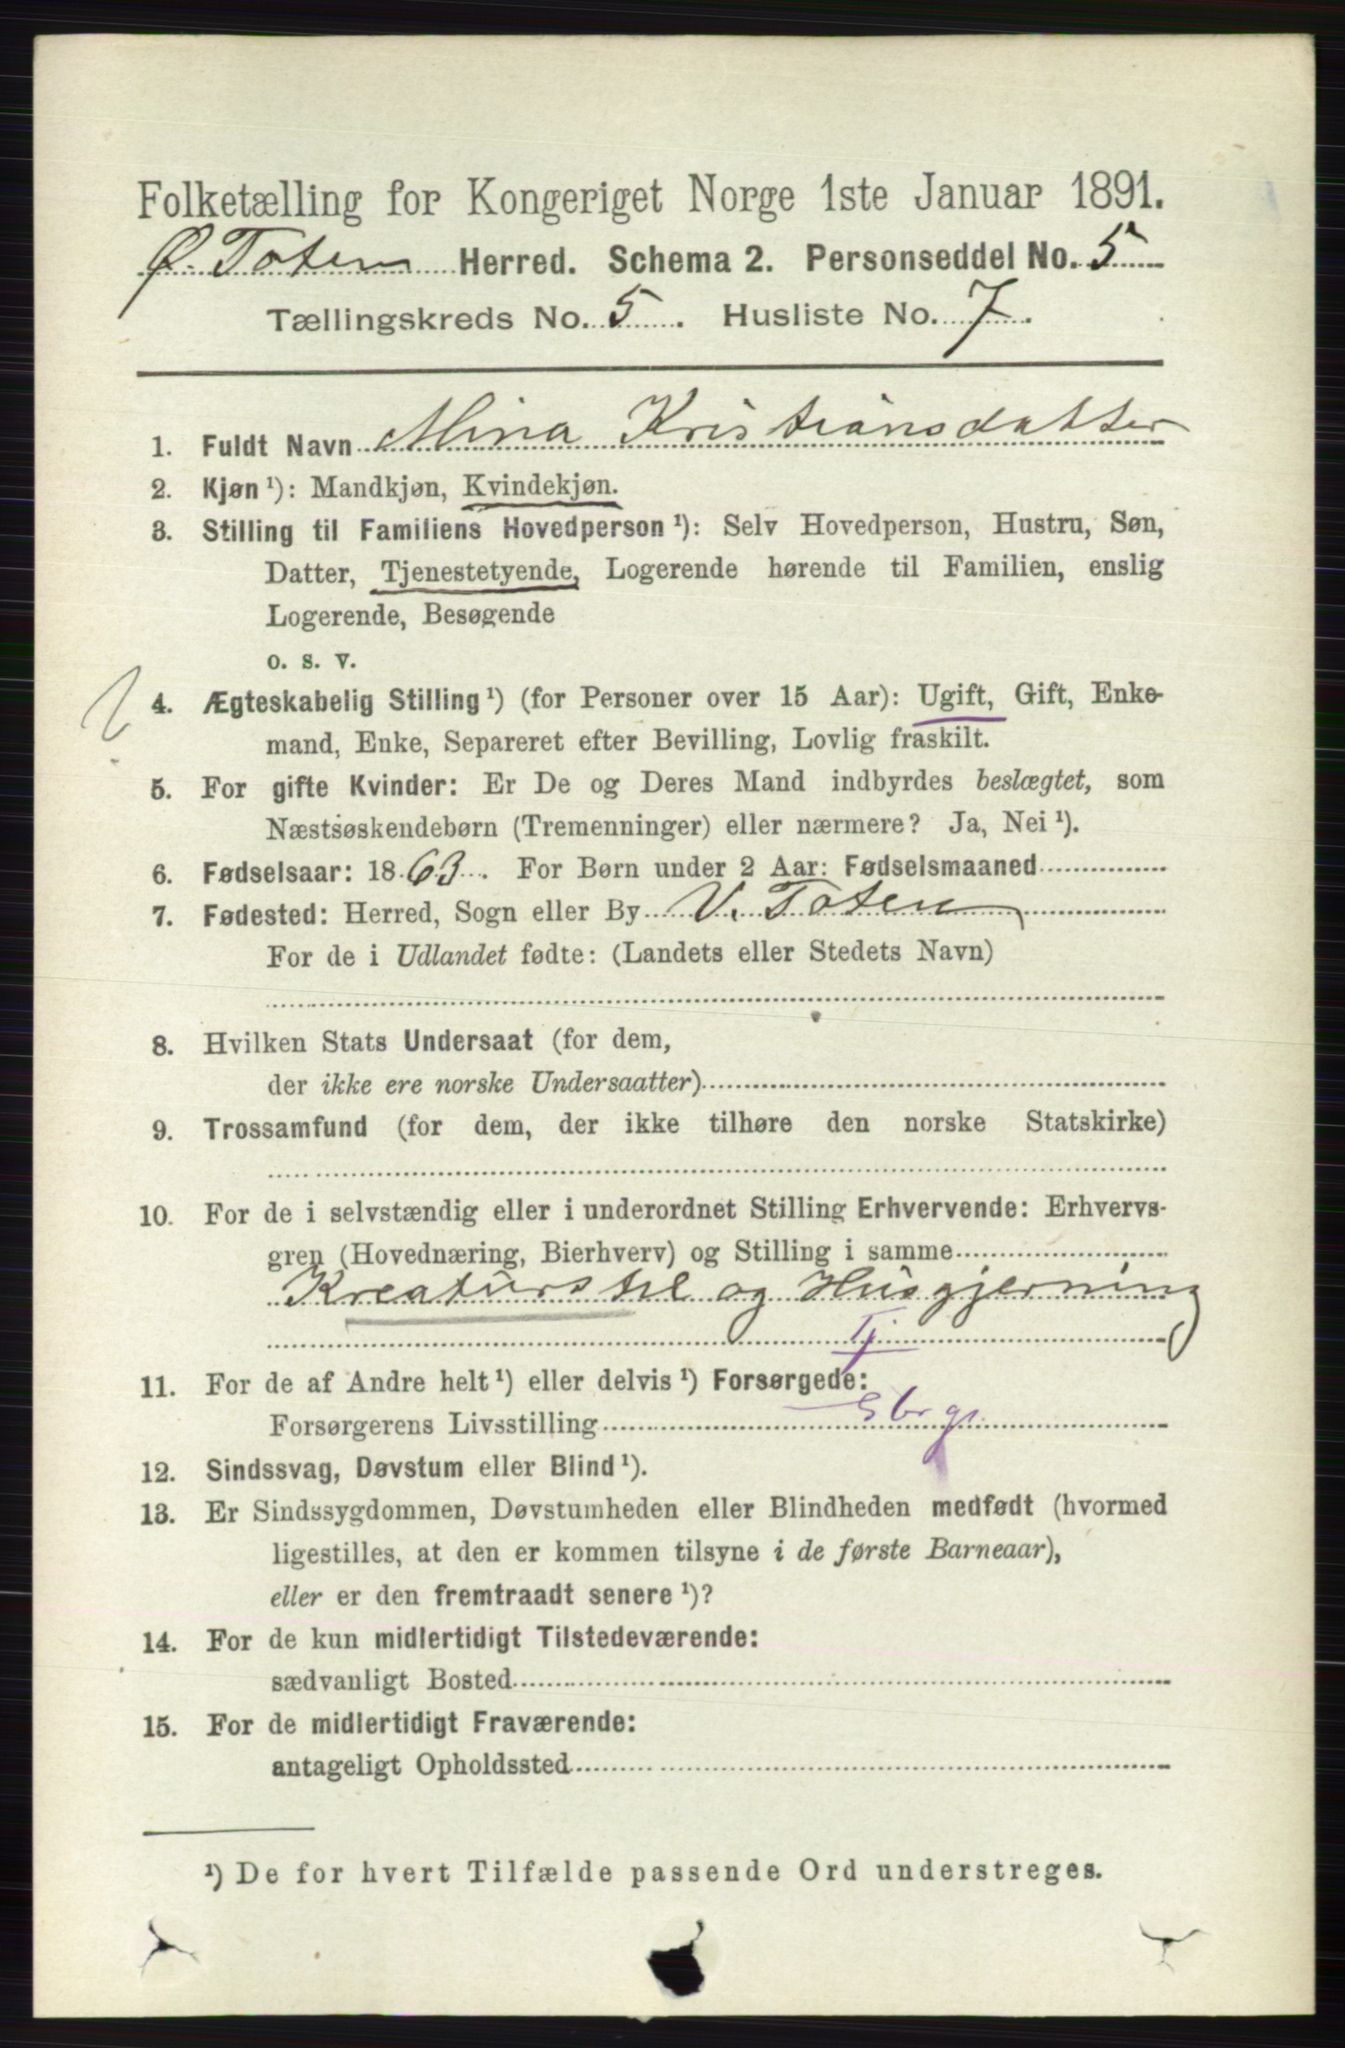 Folketælling for Kongeriget Norge 1ste Januar 1891.
Ø. Toten Herred. Schema 2. Personseddel No. 5
Tællingskreds No. 5. Husliste No. 7.
1. Fuldt Navn Mina Kristiansdatter
2. Kjøn ¹): Mandkjøn, Kvindekjøn.
3. Stilling til Familiens Hovedperson ¹): Selv Hovedperson, Hustru, Søn,
Datter, Tjenestetyende, Logerende hørende til Familien, enslig
Logerende, Besøgende
o. s. v.
4. Ægteskabelig Stilling ¹) (for Personer over 15 Aar): Ugift, Gift, Enke-
mand, Enke, Separeret efter Bevilling, Lovlig fraskilt.
5. For gifte Kvinder: Er De og Deres Mand indbyrdes beslægtet, som
Næstsøskendebørn (Tremenninger) eller nærmere? Ja, Nei ¹).
6. Fødselsaar: 1863. For Børn under 2 Aar: Fødselsmaaned
7. Fødested: Herred, Sogn eller By V. Toten
For de i Udlandet fødte: (Landets eller Stedets Navn)
8. Hvilken Stats Undersaat (for dem,
der ikke ere norske Undersaatter)
9. Trossamfund (for dem, der ikke tilhøre den norske Statskirke)
10. For de i selvstændig eller i underordnet Stilling Erhvervende: Erhvervs-
gren (Hovednæring, Bierhverv) og Stilling i samme
Kreaturstel og Husgjerning
Tj
11. For de af Andre helt ¹) eller delvis ¹) Forsørgede:
Forsørgerens Livsstilling
12. Sindssvag, Døvstum eller Blind ¹).
13. Er Sindssygdommen, Døvstumheden eller Blindheden medfødt (hvormed
ligestilles, at den er kommen tilsyne i de første Barneaar),
eller er den fremtraadt senere ¹)?
14. For de kun midlertidigt Tilstedeværende:
sædvanligt Bosted
15. For de midlertidigt Fraværende:
antageligt Opholdssted
¹) De for hvert Tilfælde passende Ord understreges.